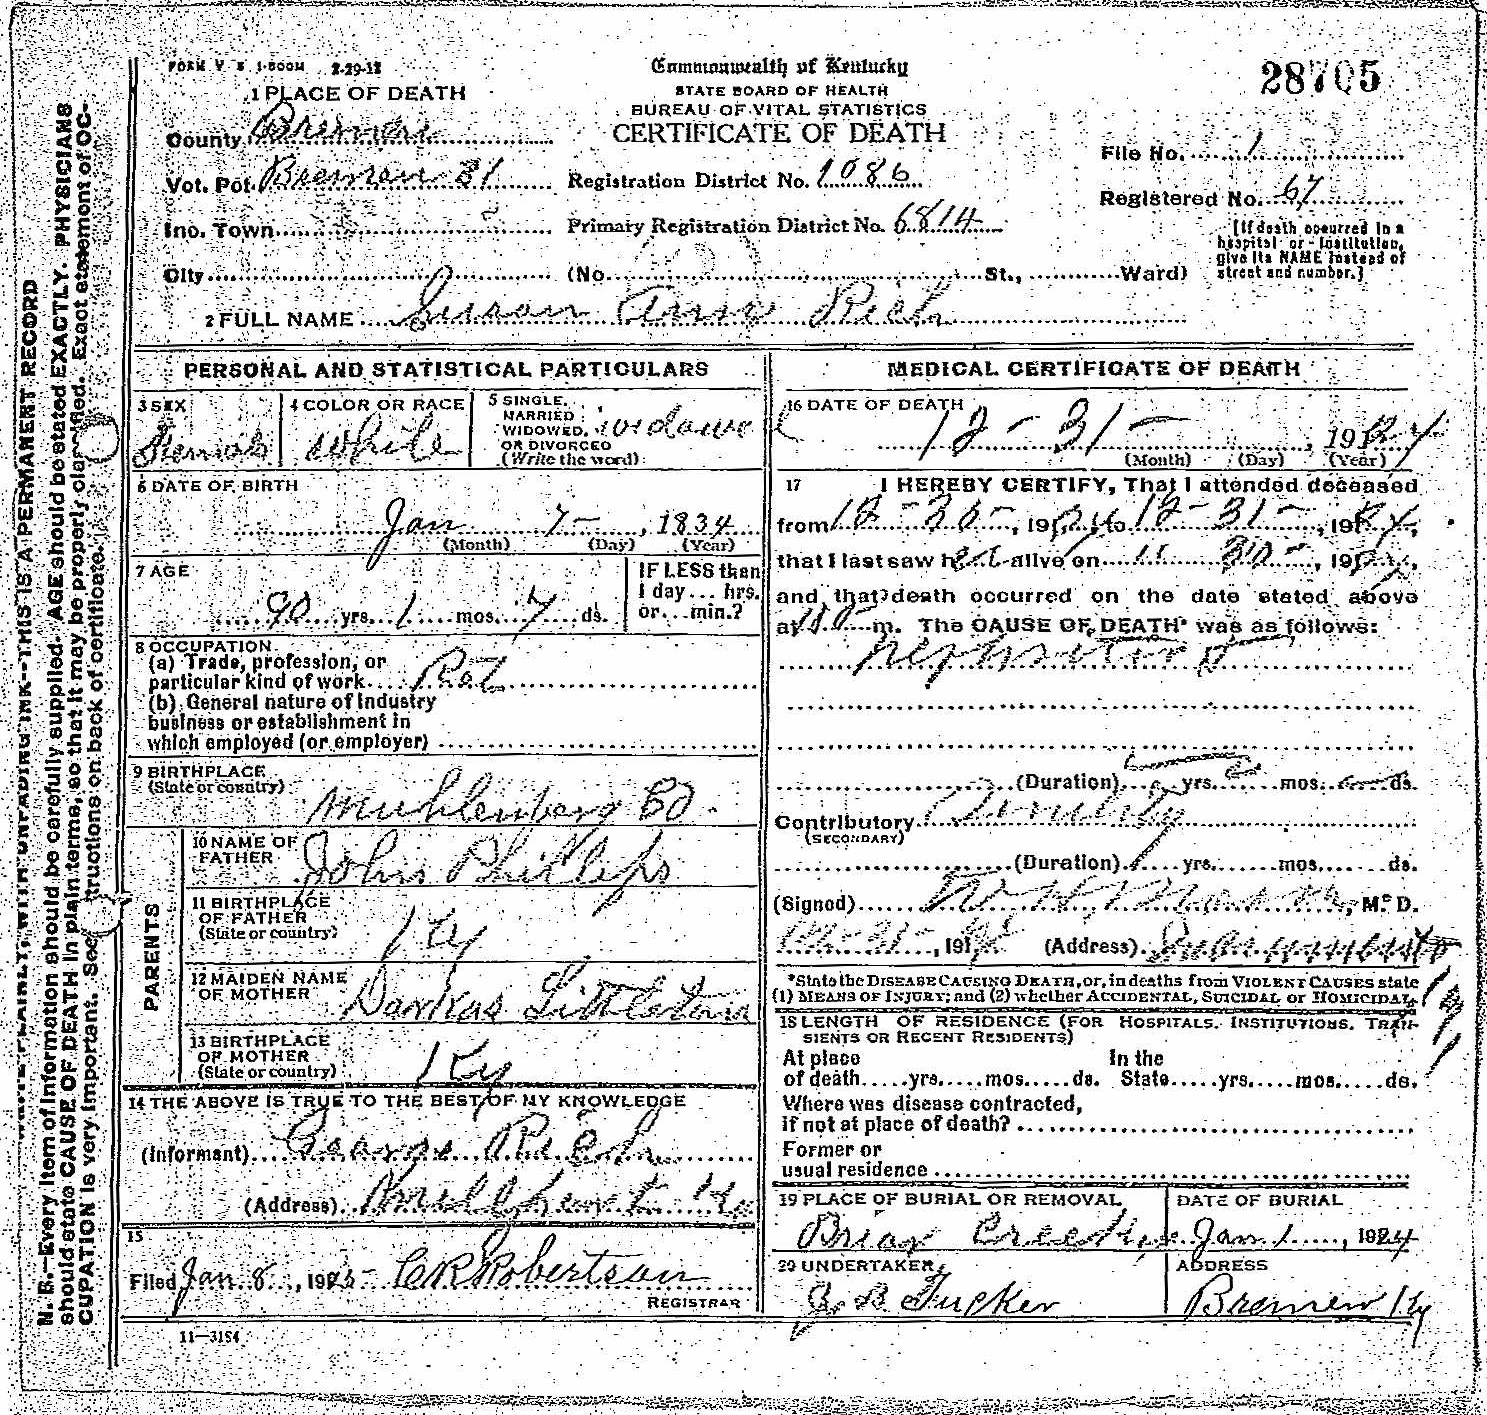 FORM V S 1-500M 2-29-12
Commonwealth of Kentucky
STATE BOARD OF HEALTH
BUREAU OF VITAL STATISTICS
CERTIFICATE OF DEATH
28705
1 PLACE OF DEATH
County Bremen
Vot. Pct. Bremen 31
Registration District No. 1086
File No. 1
Ino. Town
Primary Registration District No. 6814
Registered No. 67
City (No. St., Ward)
[If death occurred in a hospital or institution, give its NAME instead of street and number.]
2 FULL NAME Susan Ann Rich
PERSONAL AND STATISTICAL PARTICULARS
3 SEX Female
4 COLOR OR RACE White
5 SINGLE, MARRIED, WIDOWED, OR DIVORCED (Write the word)
6 DATE OF BIRTH
Jan 7 , 1834
(Month) (Day) (Year)
7 AGE
90 yrs. 1 mos. 7 ds.
IF LESS than 1 day... hrs. or... min.?
8 OCCUPATION
(a) Trade, profession, or
particular kind of work Ret
(b) General nature of Industry
business or establishment in
which employed (or employer)
9 BIRTHPLACE
(State or country)
Muhlenberg Co.
PARENTS
10 NAME OF FATHER John Phillips
11 BIRTHPLACE OF FATHER (State or country) Ky
12 MAIDEN NAME OF MOTHER Darkas Littleton
13 BIRTHPLACE OF MOTHER (State or country) Ky
14 THE ABOVE IS TRUE TO THE BEST OF MY KNOWLEDGE
(Informant) George Rich
(Address) Ky
15
Filed Jan 8 , 1925 C R Robertson
REGISTRAR
11—3184
MEDICAL CERTIFICATE OF DEATH
16 DATE OF DEATH
12 - 31 - , 1924
(Month) (Day) (Year)
17 I HEREBY CERTIFY, That I attended deceased
from 12 - 30 - , 1924 to 12 - 31 - , 1924,
that I last saw her alive on 30 - , 1924,
and that death occurred on the date stated above
at m. The CAUSE OF DEATH* was as follows:
(Duration) yrs. mos. ds.
Contributory Senility
(SECONDARY)
(Duration) yrs. mos. ds.
(Signed) , M. D.
12 - 31 - , 19 (Address)
*State the DISEASE CAUSING DEATH, or, in deaths from VIOLENT CAUSES state
(1) MEANS OF INJURY; and (2) whether ACCIDENTAL, SUICIDAL or HOMICIDAL
18 LENGTH OF RESIDENCE (FOR HOSPITALS, INSTITUTIONS, TRAN-
SIENTS OR RECENT RESIDENTS)
At place of death.....yrs.....mos.....ds. In the State.....yrs.....mos.....ds.
Where was disease contracted,
if not at place of death?
Former or
usual residence
19 PLACE OF BURIAL OR REMOVAL
Briar Creek
DATE OF BURIAL
Jan 1 , 1924
20 UNDERTAKER
J. B. Tucker
ADDRESS
Bremen Ky
N. B.—Every item of information should be carefully supplied. AGE should be stated EXACTLY. PHYSICIANS
should state CAUSE OF DEATH in plain terms, so that it may be properly classified. Exact statement of OC-
CUPATION is very important. See instructions on back of certificate.
WRITE PLAINLY, WITH UNFADING INK—THIS IS A PERMANENT RECORD